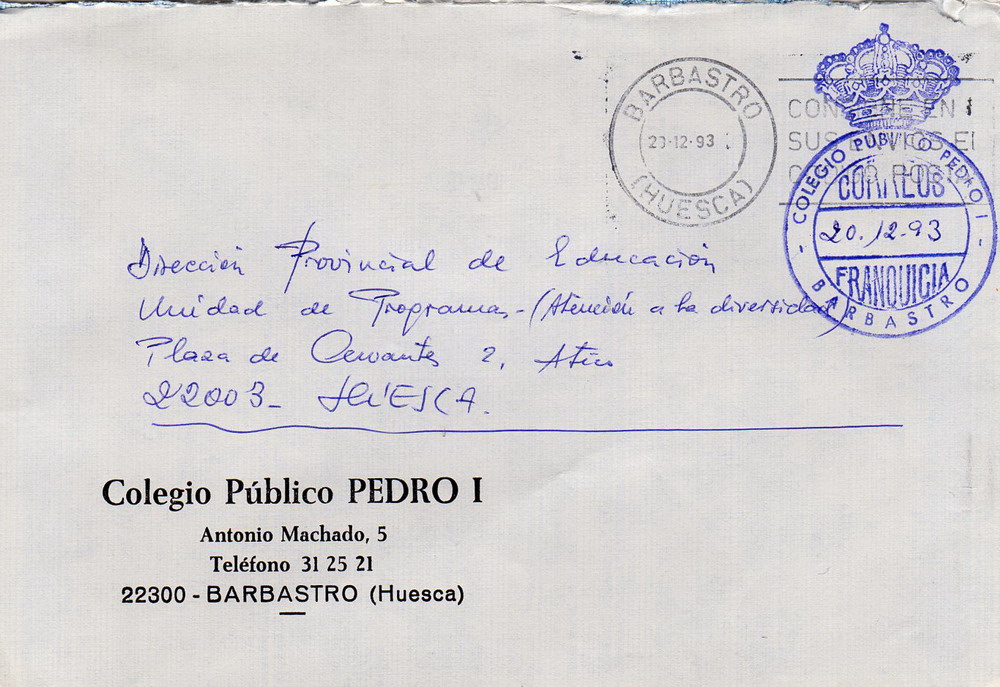 BARBASTRO
(HUESCA)
CON EN
SUS ENVIOS EL
COLEGIO PUBLICO PEDRO I
CORREOS
20.12.93
FRANQUICIA
- BARBASTRO -
Dirección Provincial de Educación
Unidad de Programas - (Atención a la diversidad)
Plaza de Cervantes 2, Atico
22003 - HUESCA.
Colegio Público PEDRO I
Antonio Machado, 5
Teléfono 31 25 21
22300 - BARBASTRO (Huesca)